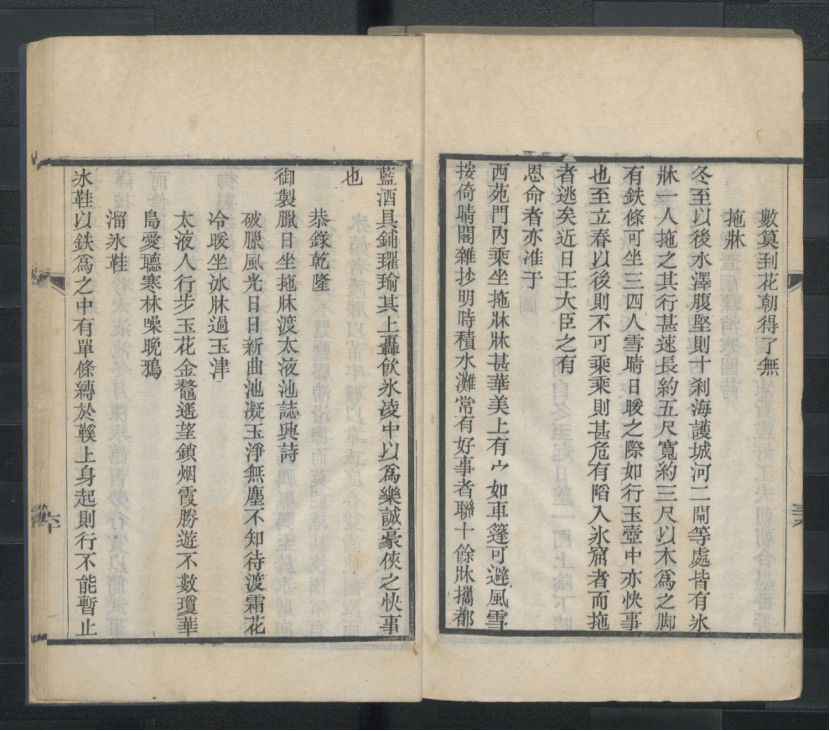 數算到花朝得了無
拖牀
冬至以後水澤腹堅則十刹海護城河二閘等處皆有氷
牀一人拖之其行甚速長約五尺寬約三尺以木爲之脚
有鉄條可坐三四人雪晴日暖之際如行玉壺中亦快事
也至立春以後則不可乘乘則甚危有陷入氷窟者而拖
者逃矣近日王大臣之有
恩命者亦准于
西苑門內乘坐拖牀牀甚華美上有宀如車篷可避風雪
按倚晴閣雜抄明時積水灘常有好事者聯十餘牀攜都
藍酒具鋪氍毹其上轟飲氷凌中以爲樂誠豪俠之快事
也
恭錄乾隆
御製臘日坐拖牀渡太液池誌興詩
破臘風光日日新曲池凝玉淨無塵不知待渡霜花
冷暖坐氷牀過玉津
太液人行步玉花金鼇遙望鎖烟霞勝遊不數瓊華
島愛聽寒林噪晩鴉
溜氷鞋
氷鞋以鉄爲之中有單條縛於鞵上身起則行不能暫止